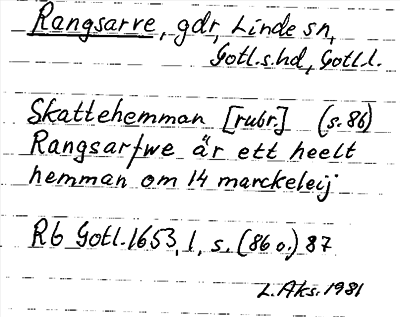 Rangsarve, gdr, Linde sn,
Gotl.s.hd, Gotl.l.
Skattehemman [rubr.] (s. 86)
Rangsarfwe är ett heelt
hemman om 14 marckeleij
Rb Gotl. 1653, 1, s. (86 o.) 87
L. Aks. 1981